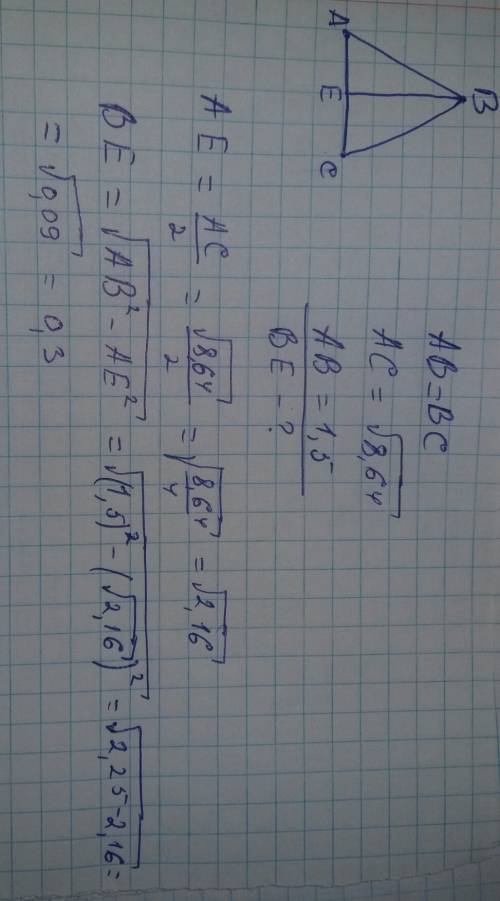 B
A E C
AB = BC
AC = √8,64
AB = 1,5
BE - ?
AE = AC/2 = √8,64/2 = √(8,64/4) = √2,16
BE = √(AB² - AE²) = √((1,5)² - (√2,16)²) = √(2,25 - 2,16) =
= √0,09 = 0,3